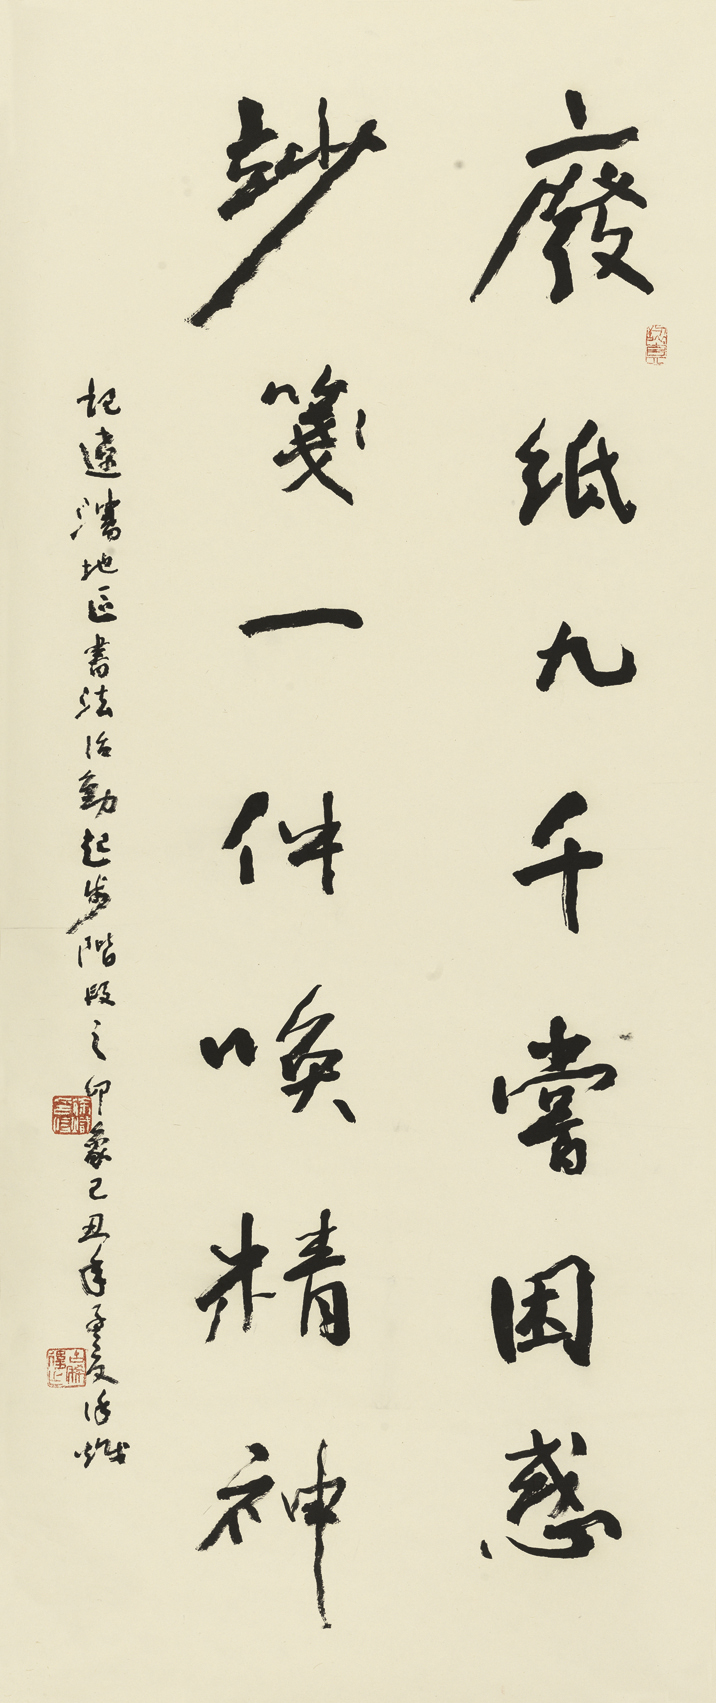 廢紙九千嘗困惑
竗箋一件喚精神
記邊疆地區書法活動起步階段之印象己丑年孟夏徐熾